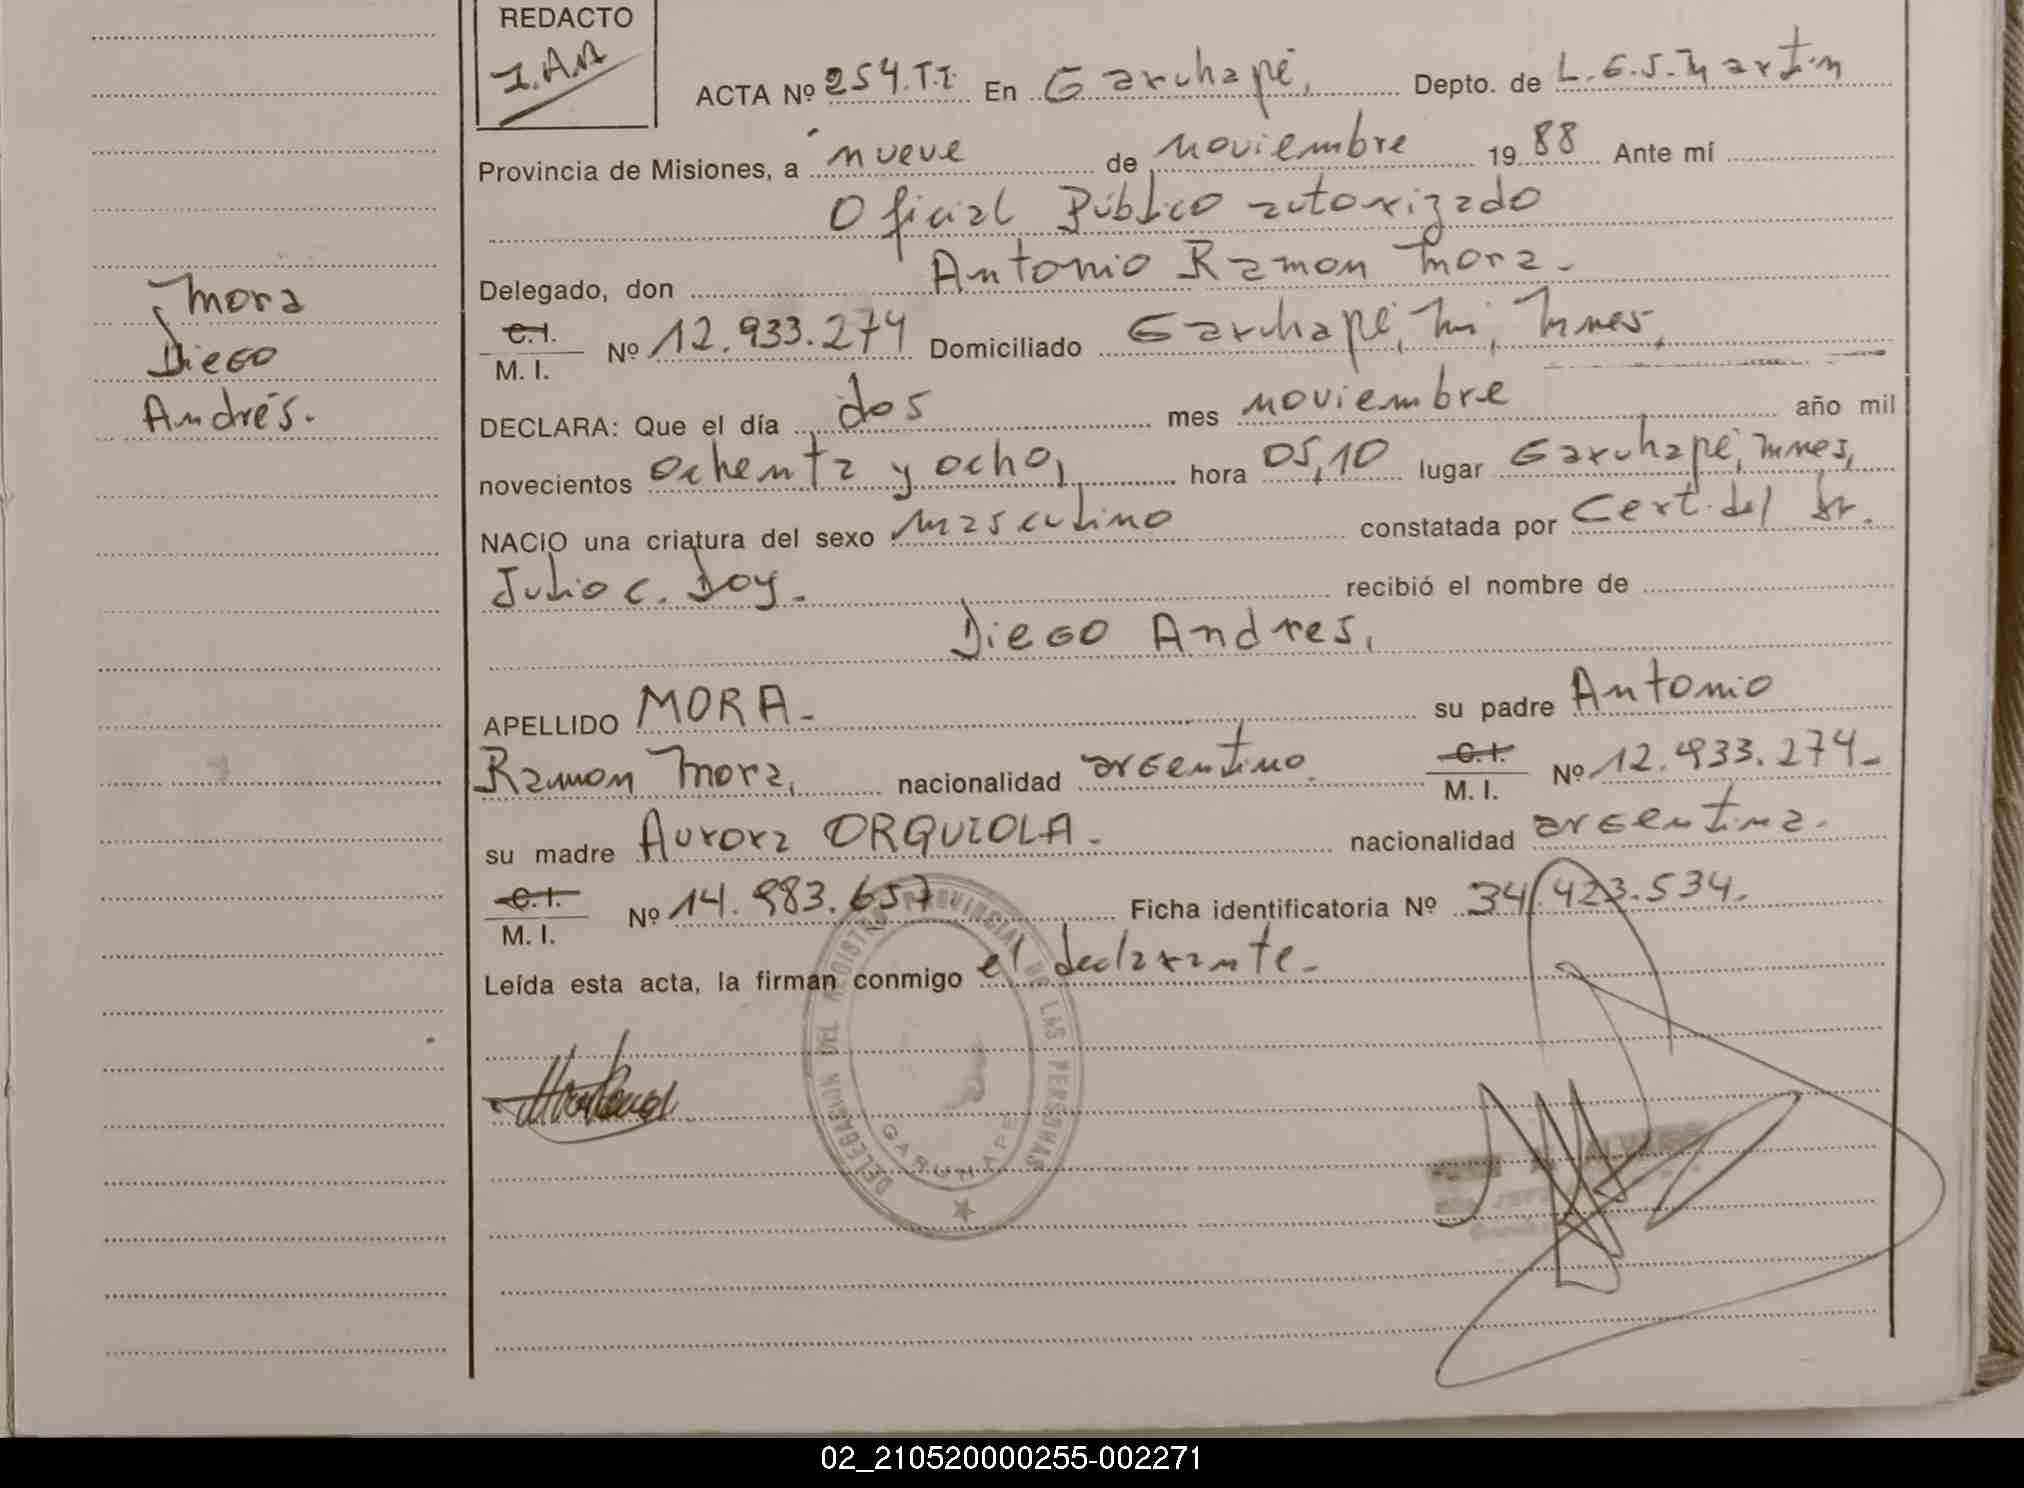 REDACTO
I.A.A
ACTA Nº 254.T.I. En Garuhapé, Depto. de L.G.S. Martin
Provincia de Misiones, a nueve de noviembre 1988 Ante mí
Oficial Público autorizado
Delegado, don Antonio Ramon Mora.-
C.I. / M. I. Nº 12.933.274 Domiciliado Garuhapé, Mi, Mnes,
DECLARA: Que el día dos mes noviembre año mil
novecientos ochenta y ocho, hora 05,10 lugar Garuhapé, Mnes,
NACIO una criatura del sexo masculino constatada por Cert. del Dr.
Julio C. Doy.- recibió el nombre de
Diego Andres,
APELLIDO MORA.- su padre Antonio
Ramon Mora, nacionalidad argentino. C.I. / M. I. Nº 12.933.274.-
su madre Aurora ORQUIOLA.- nacionalidad argentina.-
C.I. / M. I. Nº 14.983.657 Ficha identificatoria Nº 34.423.534.-
Leída esta acta, la firman conmigo el declarante.-
Mora
Diego
Andrés.
DELEGACION DEL REGISTRO PROVINCIAL DE LAS PERSONAS
GARUHAPE
ALVAREZ
02_210520000255-002271